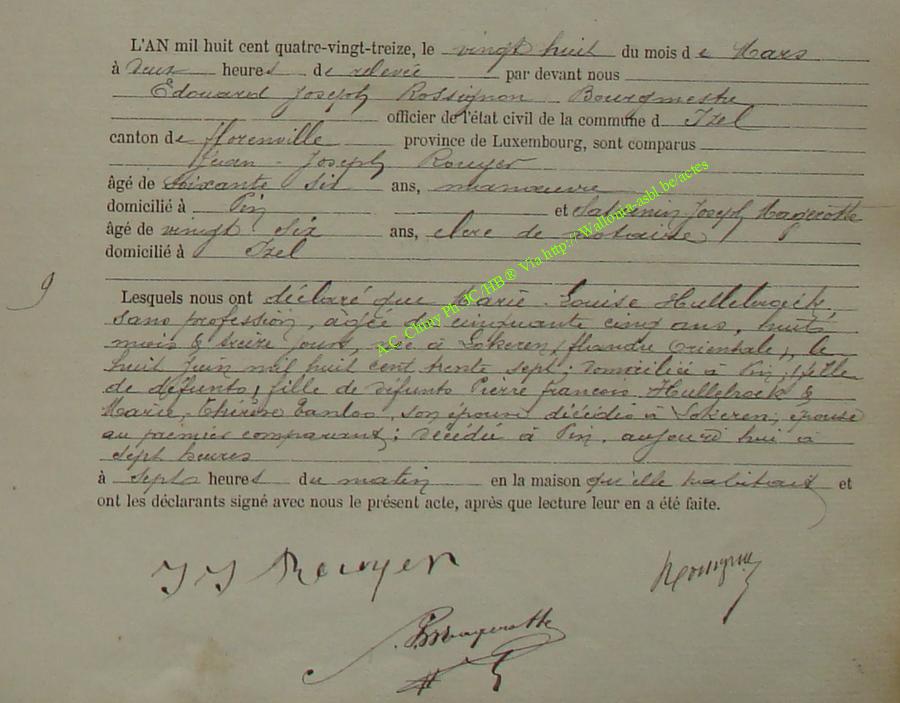 L'AN mil huit cent quatre-vingt-treize, le vingt huit du mois de Mars
à deux heures de relevée par devant nous
Edouard Joseph Rossignon Bourgmestre
officier de l'état civil de la commune d Izel
canton de Florenville province de Luxembourg, sont comparus
Jean-Joseph Rouyer
âgé de soixante six ans, manœuvre
domicilié à Pin et Saturnin Joseph Magerotte
âgé de vingt six ans, clerc de notaire
domicilié à Izel
9
Lesquels nous ont déclaré que Marie-Louise Hullebroeck
sans profession, âgée de cinquante cinq ans, huit
mois & treize jours, née à Lokeren (flandre Orientale), le
huit juin mil huit cent trente sept; domiciliée à Pin; fille
de défunts; fille de défunts Pierre françois Hullebroeck &
Marie-Thérèse Vanloo, son épouse décédés à Lokeren; épouse
au premier comparant; décédée à Pin, aujourd'hui à
sept heures
à sept heures du matin en la maison qu'elle habitait et
ont les déclarants signé avec nous le présent acte, après que lecture leur en a été faite.
J J Rouyer
Rossignon
S. Magerotte
A.C. Chiny Ph JC/HB® Via http://Wallonia-asbl.be/actes